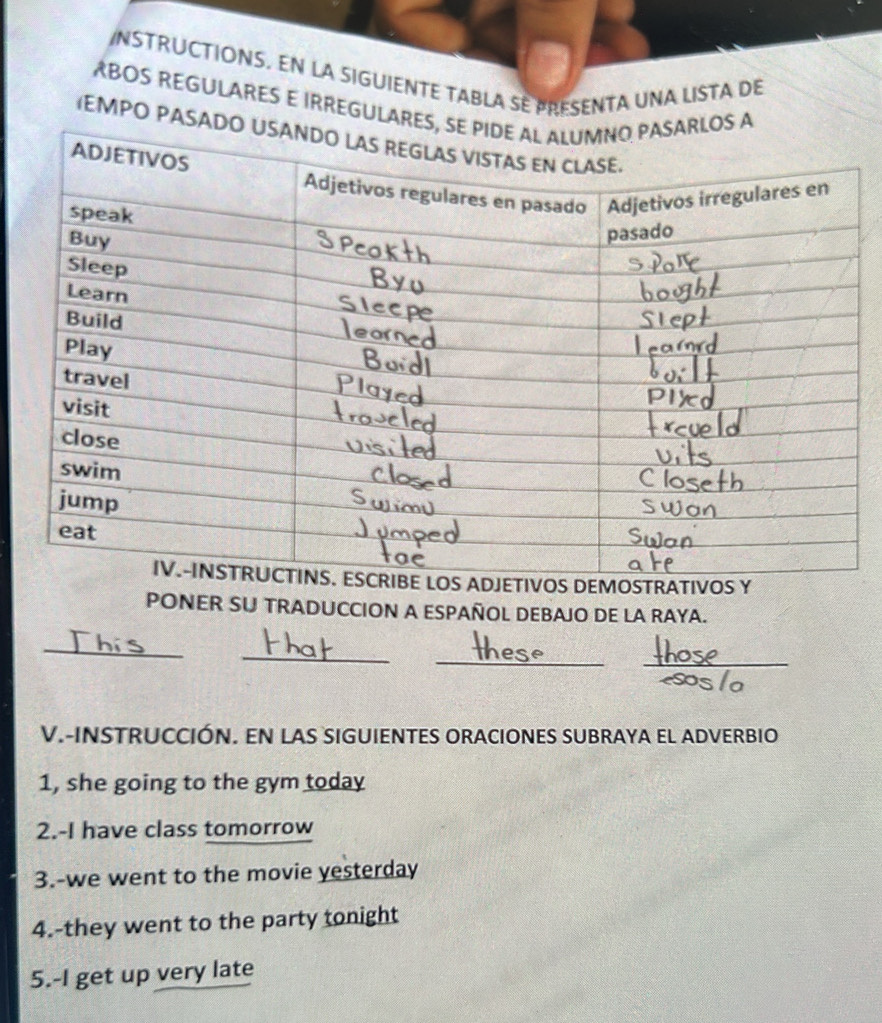 INSTRUCTIONS. EN LA SIGUIENTE TABLA SE PRESENTA UNA LISTA DE
RBOS REGULARES E IRREGULARES, SE PIDE AL ALUMNO PASARLOS A
IEMPO PASADO USANDO LAS REGLAS VISTAS EN CLASE.
ADJETIVOS Adjetivos regulares en pasado Adjetivos irregulares en pasado
speak Speakth spoke
Buy Byu bought
Sleep Sleepe Slept
Learn learned learnrd
Build Buidl built
Play Played Plyed
travel traveled treveld
visit visited vits
close closed Closeth
swim Swimu swan
jump Jumped Swan
eat tae ate
IV.-INSTRUCTINS. ESCRIBE LOS ADJETIVOS DEMOSTRATIVOS Y
PONER SU TRADUCCION A ESPAÑOL DEBAJO DE LA RAYA.
This that these those
esos/a
V.-INSTRUCCIÓN. EN LAS SIGUIENTES ORACIONES SUBRAYA EL ADVERBIO
1, she going to the gym today
2.-I have class tomorrow
3.-we went to the movie yesterday
4.-they went to the party tonight
5.-I get up very late